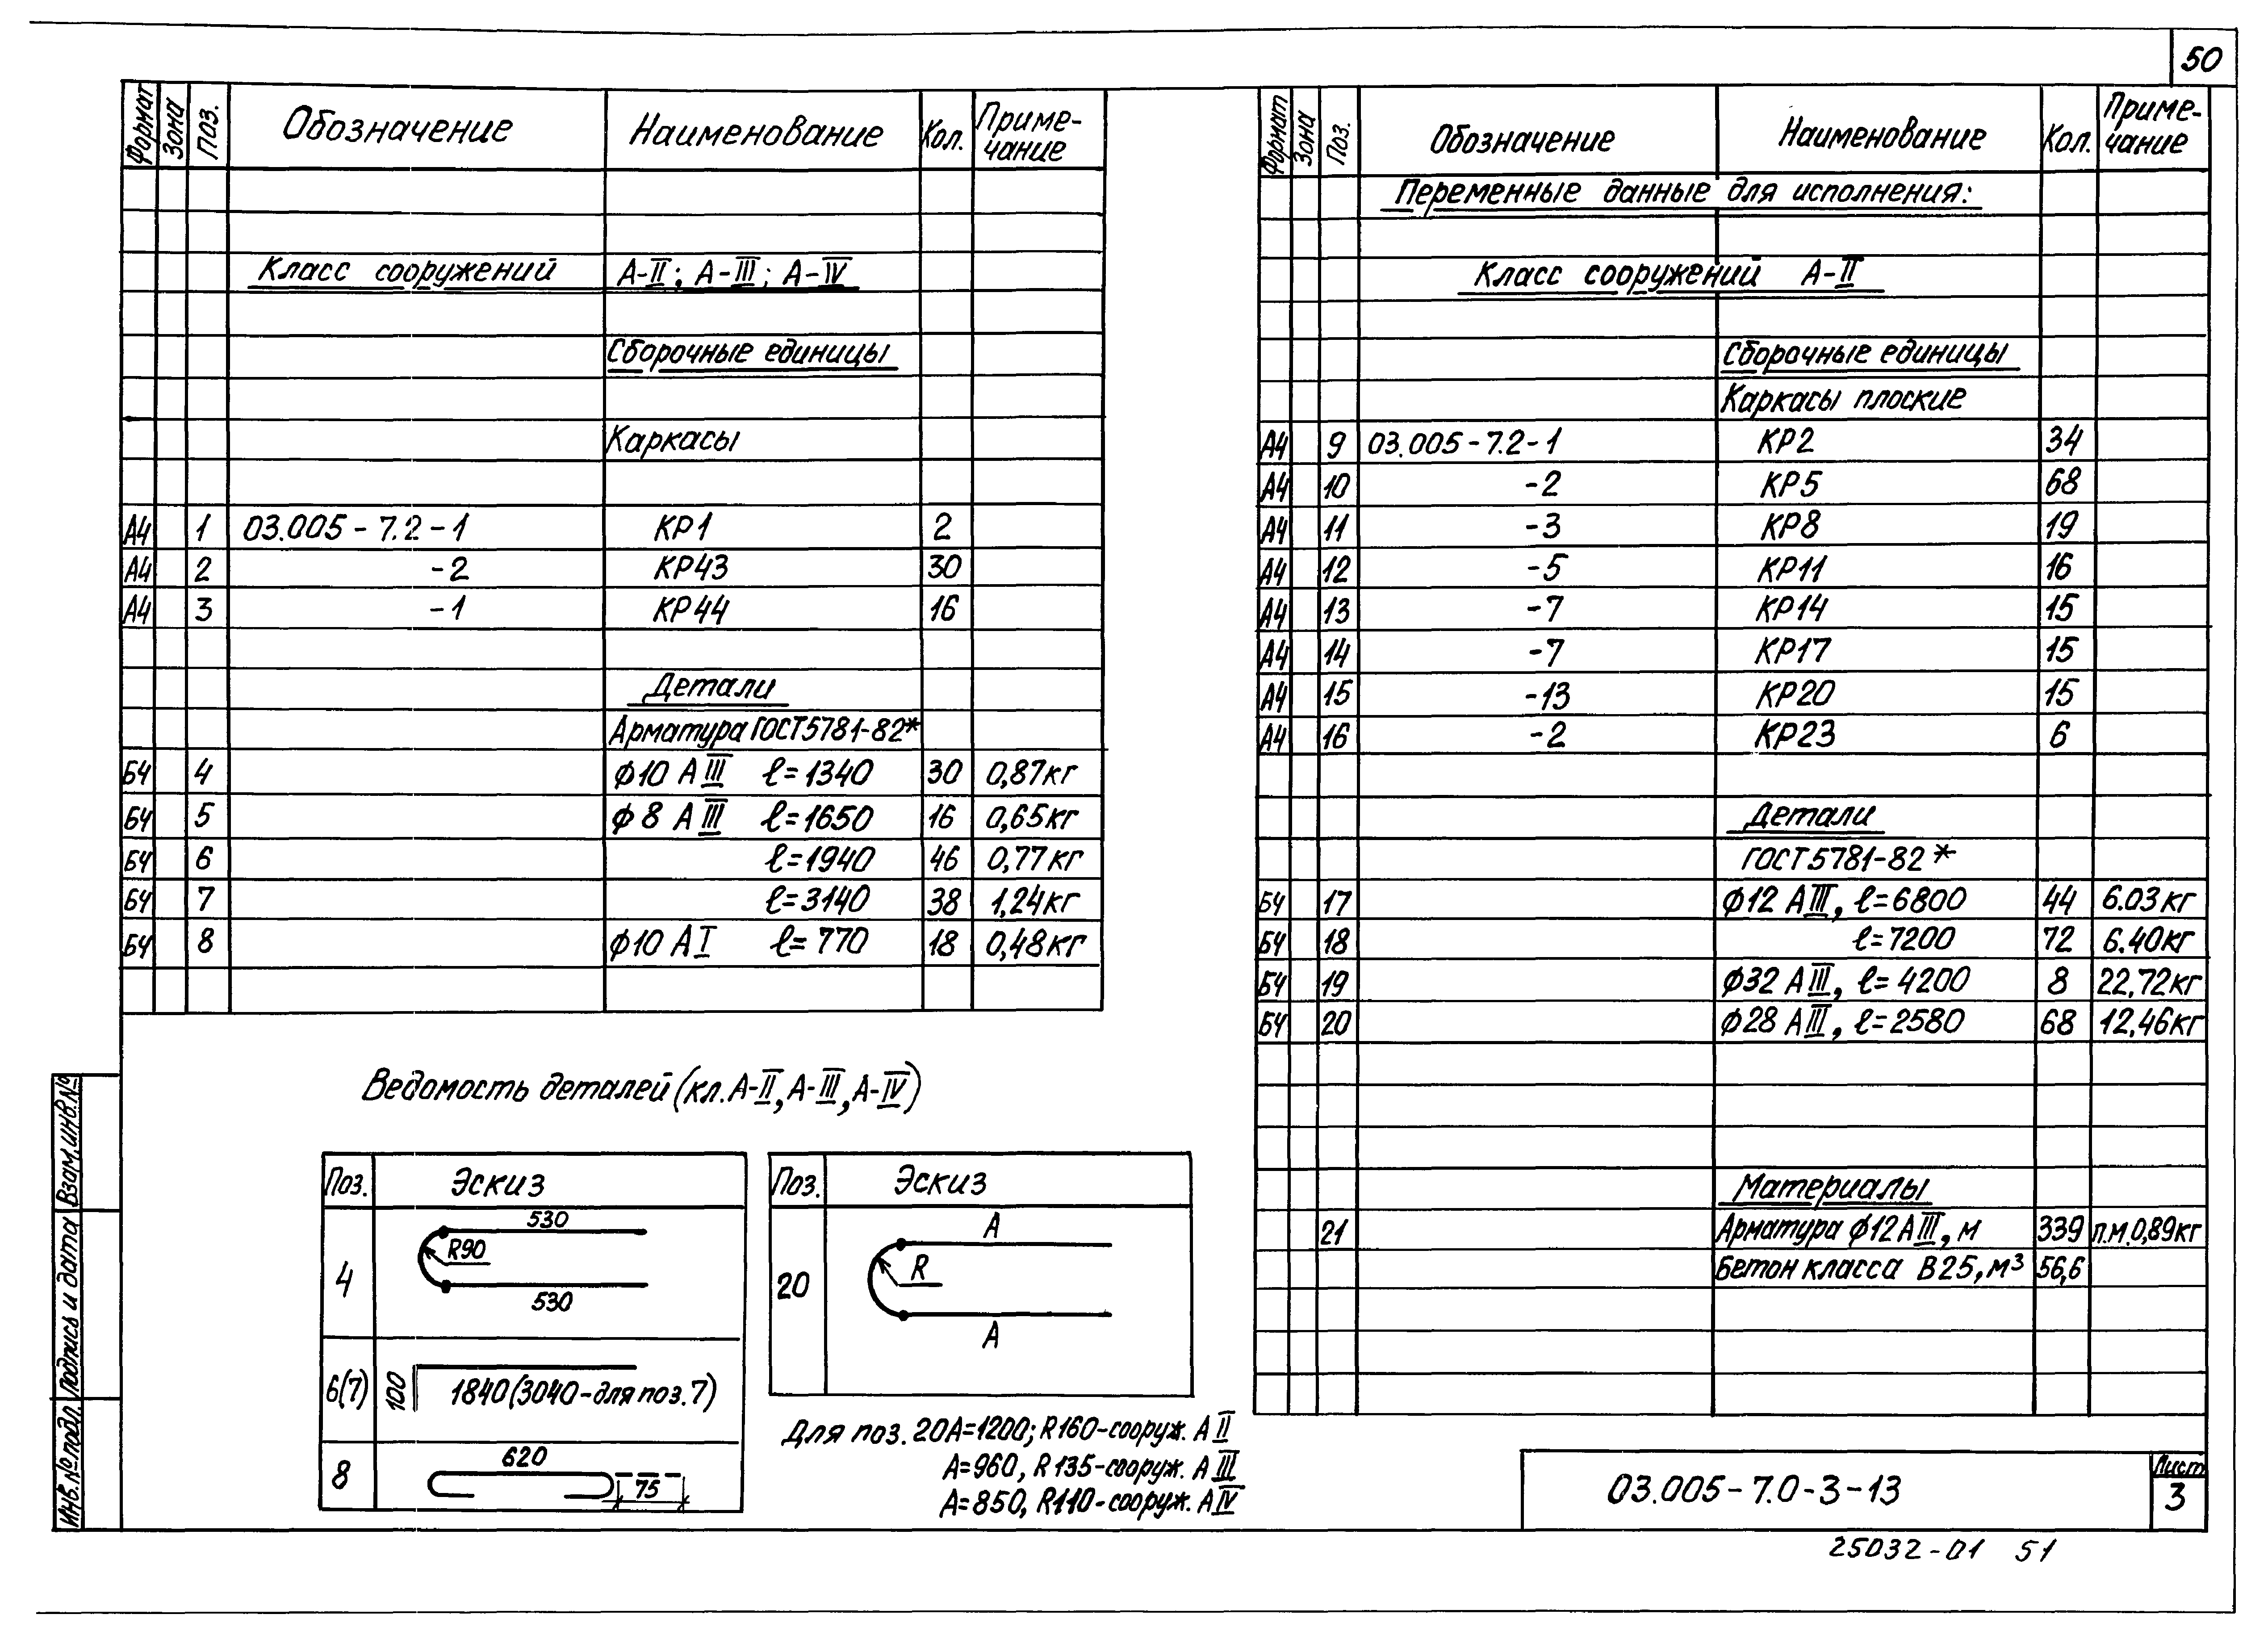 50
Формат Зона Поз. Обозначение Наименование Кол. Приме-
чание
Класс сооружений А-II; А-III; А-IV
Сборочные единицы
Каркасы
А4 1 03.005-7.2-1 КР1 2
А4 2 -2 КР43 30
А4 3 -1 КР44 16
Детали
Арматура ГОСТ5781-82*
БЧ 4 ϕ10 АIII ℓ=1340 30 0,87кг
БЧ 5 ϕ8 АIII ℓ=1650 16 0,65кг
БЧ 6 ℓ=1940 46 0,77кг
БЧ 7 ℓ=3140 38 1,24кг
БЧ 8 ϕ10 АI ℓ=770 18 0,48кг
Формат Зона Поз. Обозначение Наименование Кол. Приме-
чание
Переменные данные для исполнения:
Класс сооружений А-II
Сборочные единицы
Каркасы плоские
А4 9 03.005-7.2-1 КР2 34
А4 10 -2 КР5 68
А4 11 -3 КР8 19
А4 12 -5 КР11 16
А4 13 -7 КР14 15
А4 14 -7 КР17 15
А4 15 -13 КР20 15
А4 16 -2 КР23 6
Детали
ГОСТ5781-82*
БЧ 17 ϕ12 АIII, ℓ=6800 44 6.03кг
БЧ 18 ℓ=7200 72 6.40кг
БЧ 19 ϕ32 АIII, ℓ=4200 8 22,72кг
БЧ 20 ϕ28 АIII, ℓ=2580 68 12,46кг
Материалы
21 Арматура ϕ12АIII, м 339 п.м.0,89кг
Бетон класса В25, м³ 56,6
Ведомость деталей (кл. А-II, А-III, А-IV)
Поз. Эскиз
4 530
R90
530
6(7) 100 1840(3040-для поз.7)
8 620
75
Поз. Эскиз
20 А
R
А
Для поз. 20А=1200; R160-сооруж. АII
А=960, R135-сооруж. АIII
А=850, R110-сооруж. АIV
Инв.№подл. Подпись и дата Взам.инв.№
03.005-7.0-3-13
Лист
3
25032-01 51